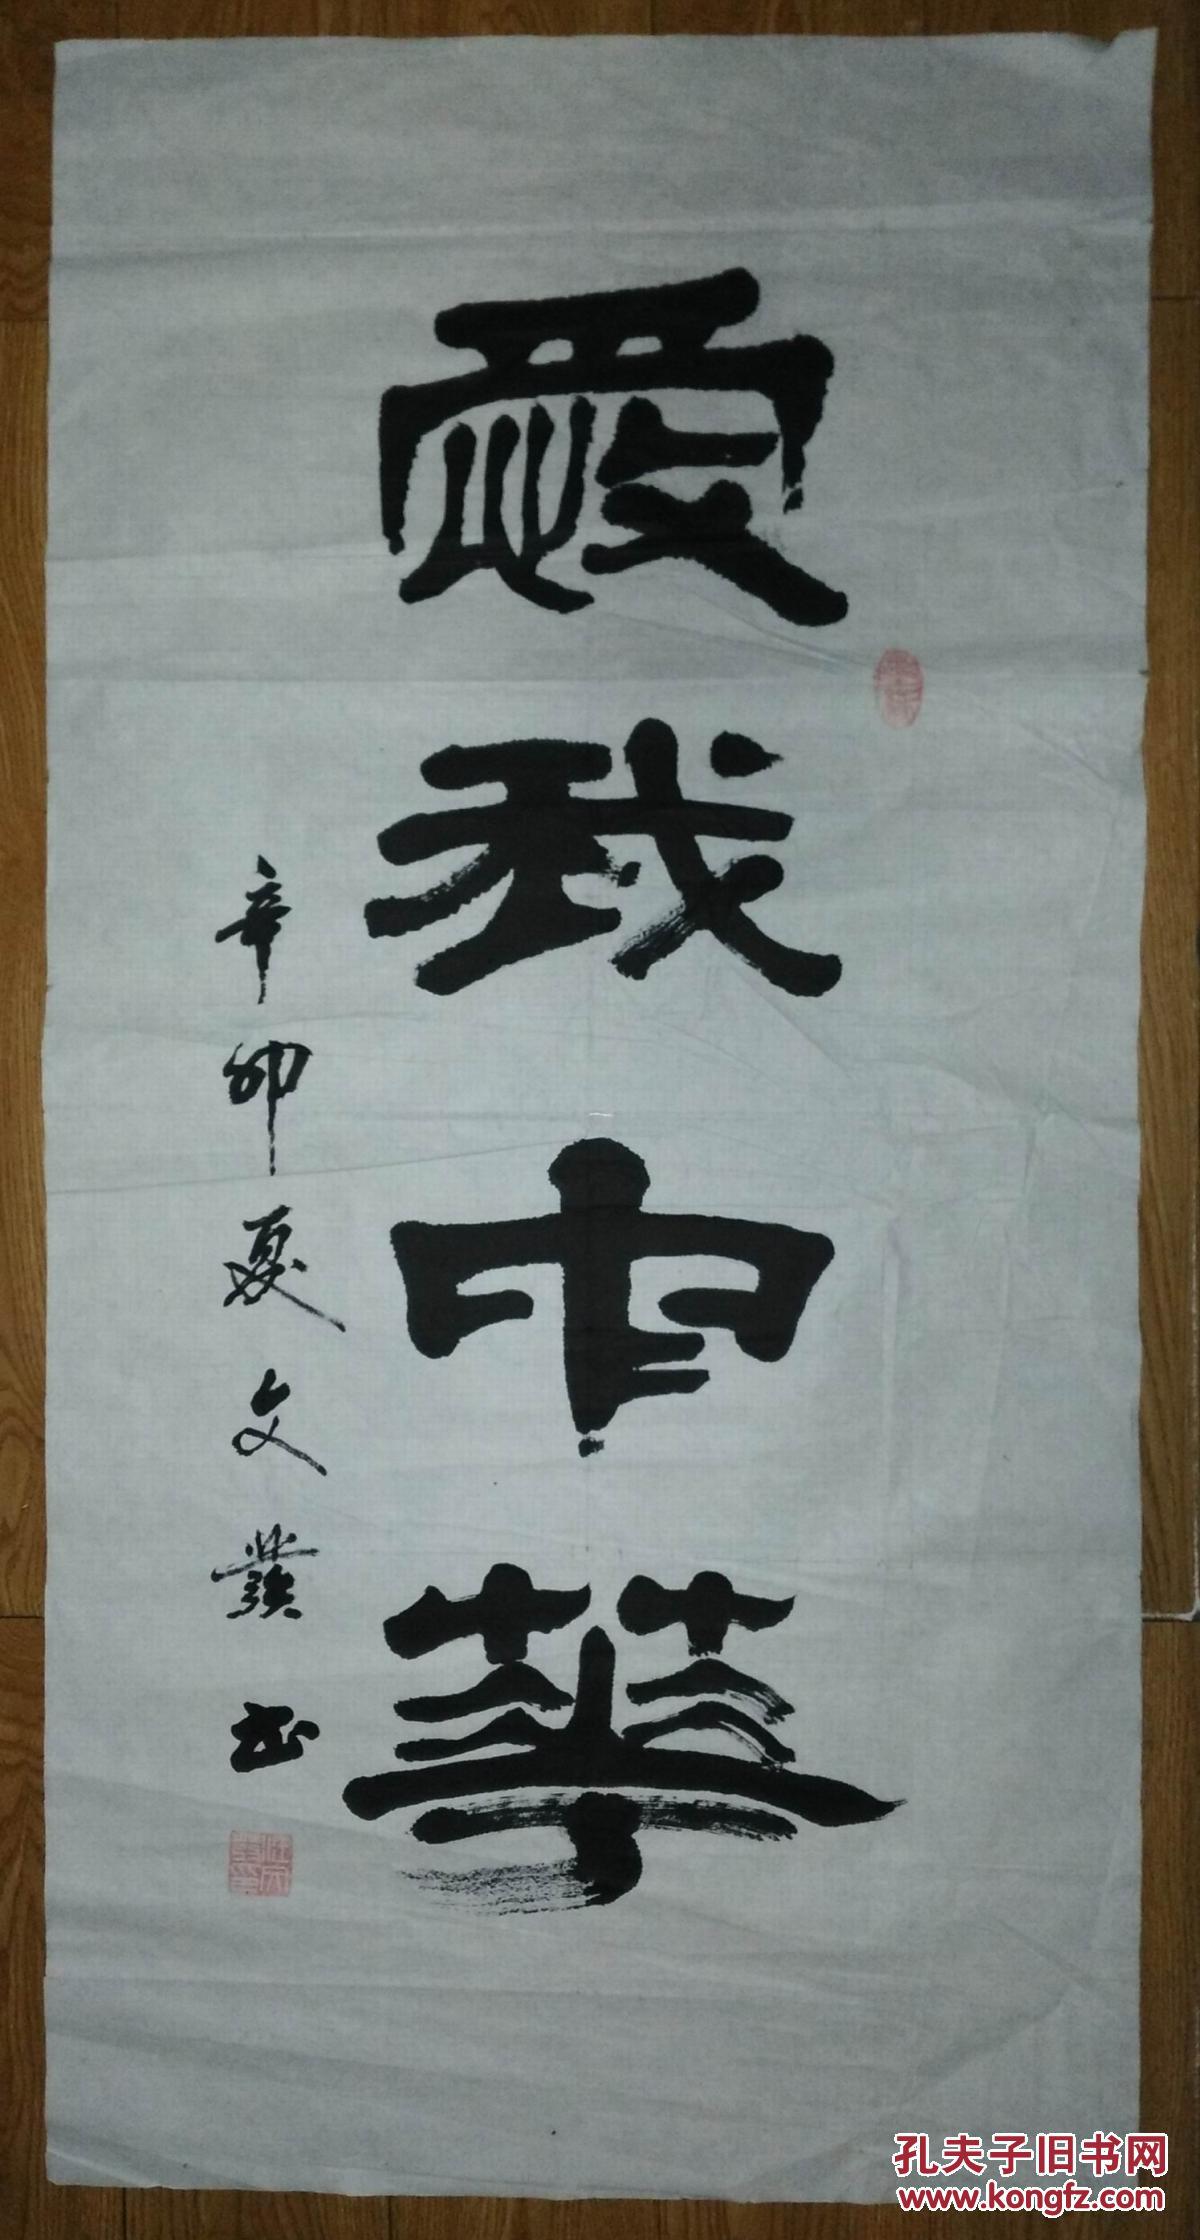 愛我中華
辛卯夏文業书
孔夫子旧书网
www.kongfz.com